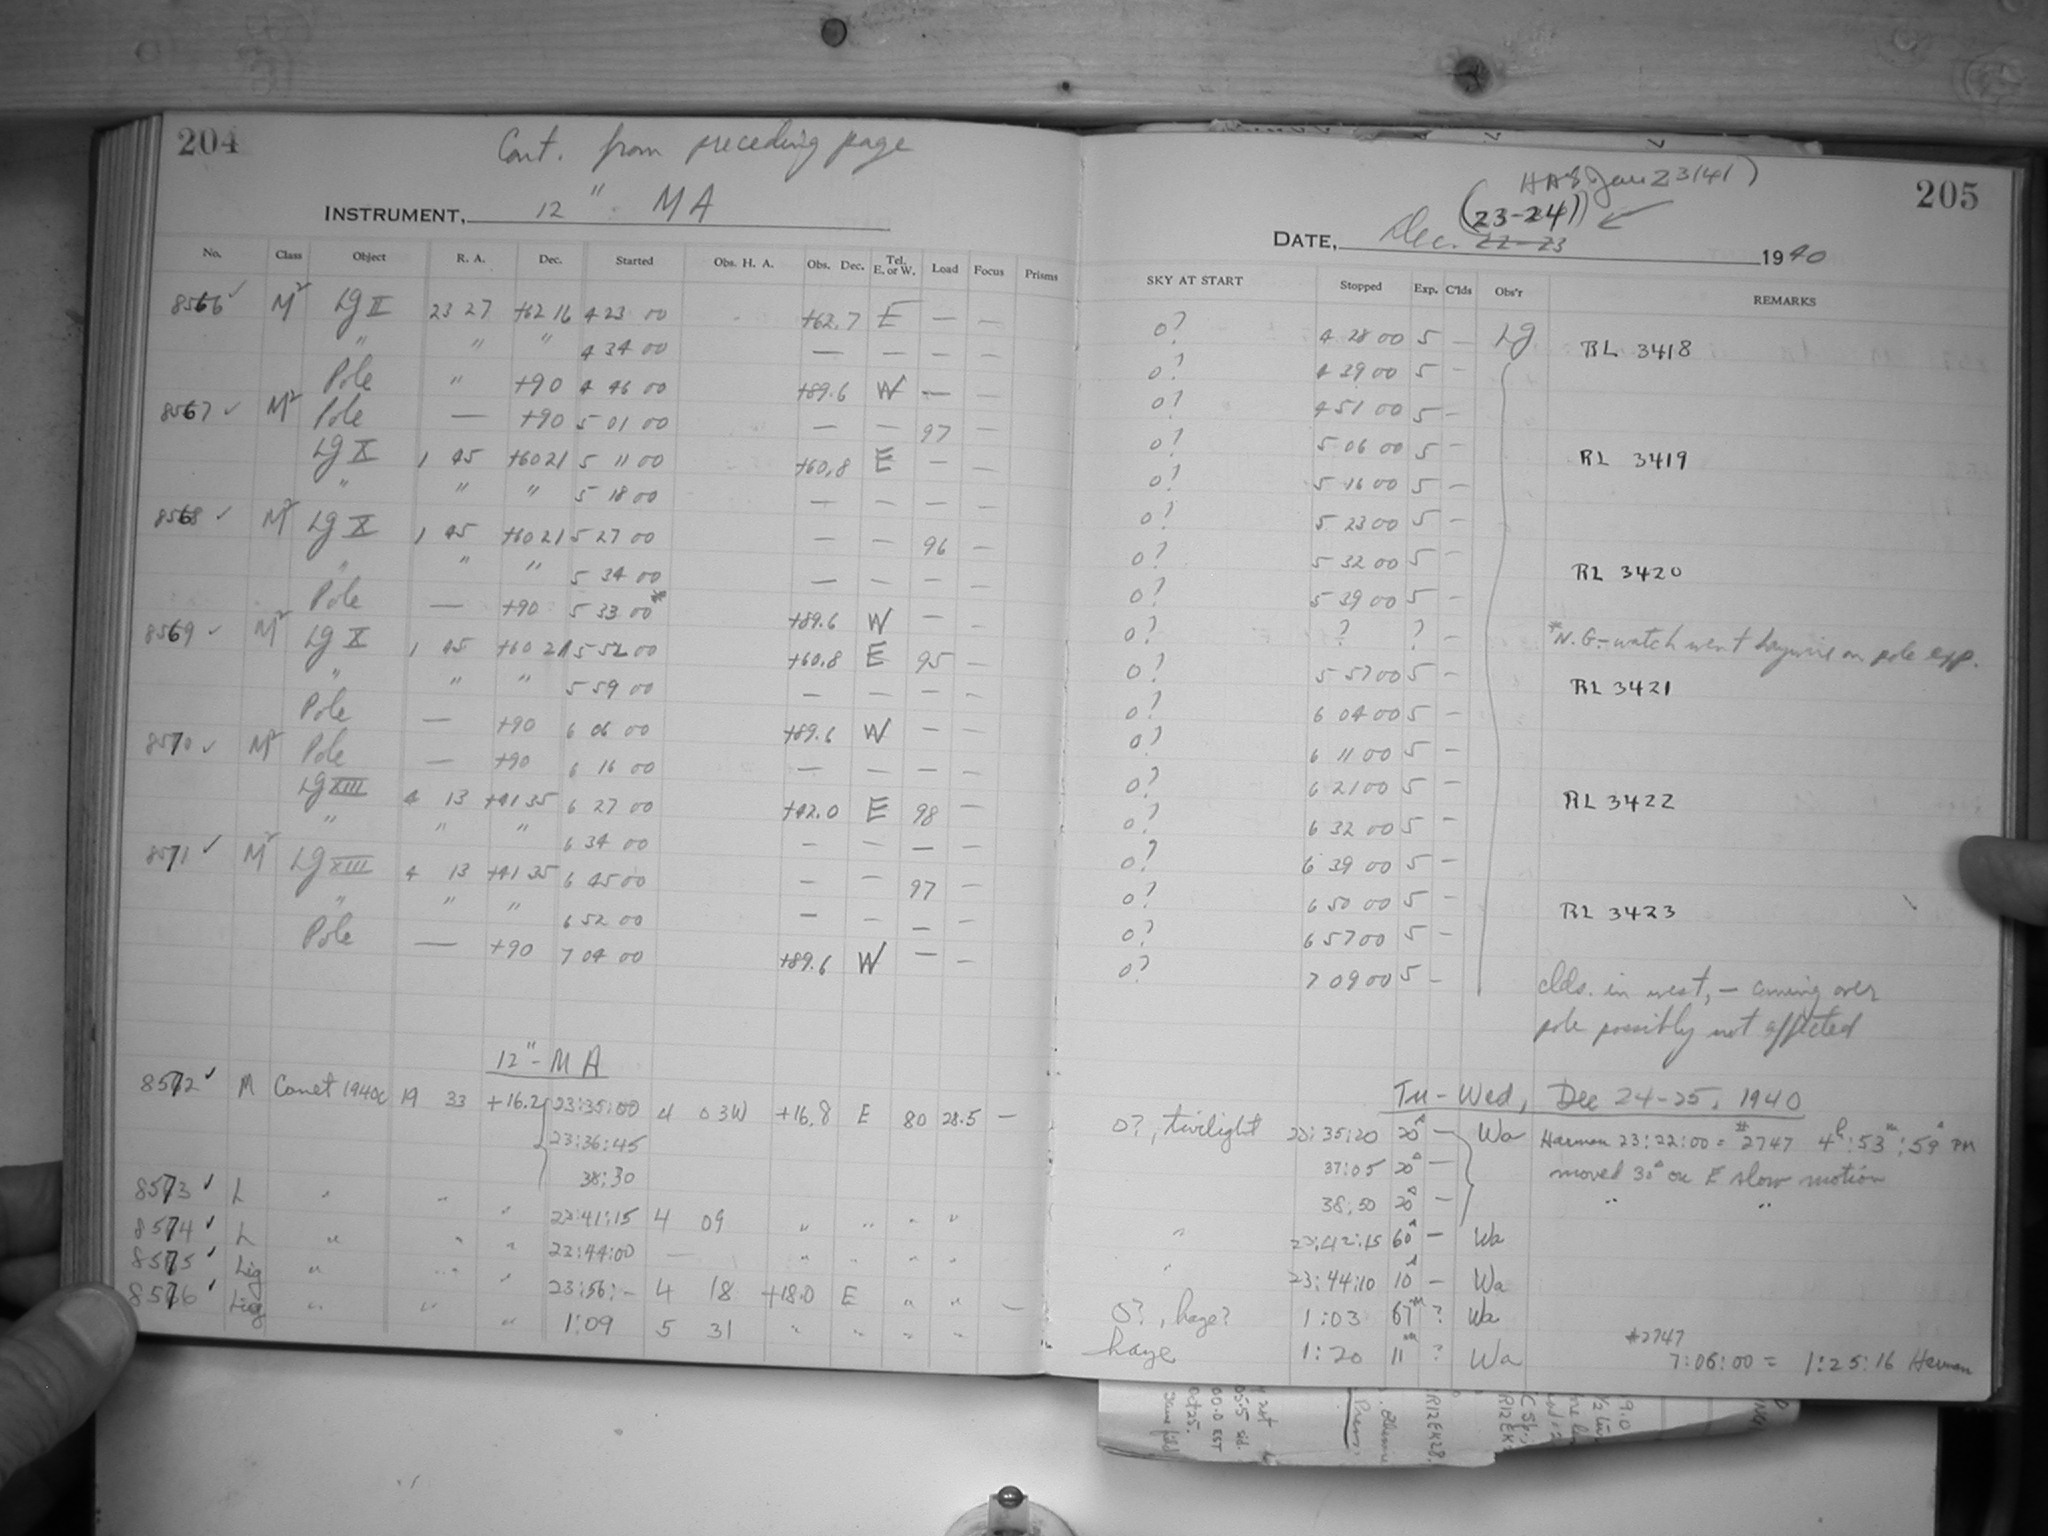 204
Cont. from preceding page
INSTRUMENT, 12" MA
No. Class Object R. A. Dec. Started Obs. H. A. Obs. Dec. Tel. E. or W. Load Focus Prisms
8566 ✓ M² Lg II 23 27 +62 16 4 23 00 +62.7 E — —
" " " 4 34 00 — — — —
Pole " +90 4 46 00 +89.6 W — —
8567 ✓ M² Pole — +90 5 01 00 — — 97 —
Lg X 1 45 +60 21 5 11 00 +60.8 E — —
" " " 5 18 00 — — — —
8568 ✓ M² Lg X 1 45 +60 21 5 27 00 — — 96 —
" " " 5 34 00 — — — —
Pole — +90 5 33 00* +89.6 W — —
8569 ✓ M² Lg X 1 45 +60 21 5 52 00 +60.8 E 95 —
" " " 5 59 00 — — — —
Pole — +90 6 06 00 +89.6 W — —
8570 ✓ M² Pole — +90 6 16 00 — — — —
Lg XIII 4 13 +41 35 6 27 00 +42.0 E 98 —
" " " 6 34 00 — — — —
8571 ✓ M² Lg XIII 4 13 +41 35 6 45 00 — — 97 —
" " " 6 52 00 — — — —
Pole — +90 7 04 00 +89.6 W — —
12"- MA
8572 ✓ M Comet 1940c 19 33 +16.2 23:35:00 4 03W +16.8 E 80 28.5 —
23:36:45
38:30
8573 ✓ L " " " 23:41:15 4 09 " " " "
8574 ✓ L " " " 23:44:00 — " " " "
8575 ✓ Lig " " " 23:56:- 4 18 +18.0 E " " —
8576 ✓ Lig " " " 1:09 5 31 " " " "
205
HAS Jan 23 (41)
(23-24)
DATE, Dec. 22-23 1940
SKY AT START Stopped Exp. C'lds Obs'r REMARKS
0? 4 28 00 5 — Lg RL 3418
0? 4 39 00 5 —
0? 4 51 00 5 —
0? 5 06 00 5 — RL 3419
0? 5 16 00 5 —
0? 5 23 00 5 —
0? 5 32 00 5 — RL 3420
0? 5 39 00 5 —
0? ? ? — *N.G.- watch went haywire on pole exp.
0? 5 57 00 5 — RL 3421
0? 6 04 00 5 —
0? 6 11 00 5 —
0? 6 21 00 5 — RL 3422
0? 6 32 00 5 —
0? 6 39 00 5 —
0? 6 50 00 5 — RL 3423
0? 6 57 00 5 —
0? 7 09 00 5 — clds. in west, — coming over
pole possibly not affected
Tu - Wed, Dec 24-25, 1940
0?, twilight 23:35:20 20ˢ — Wa Harman 23:22:00 = #2747 4ʰ:53ᵐ:59ˢ PM
37:05 20ˢ — moved 30ˢ on E slow motion
38:50 20ˢ — " "
" 23:42:15 60ˢ — Wa
" 23:44:10 10ˢ — Wa
0?, haze? 1:03 67ᵐ ? Wa
haze 1:20 11ᵐ ? Wa
#2747
7:06:00 = 1:25:16 Harman
R12EK28